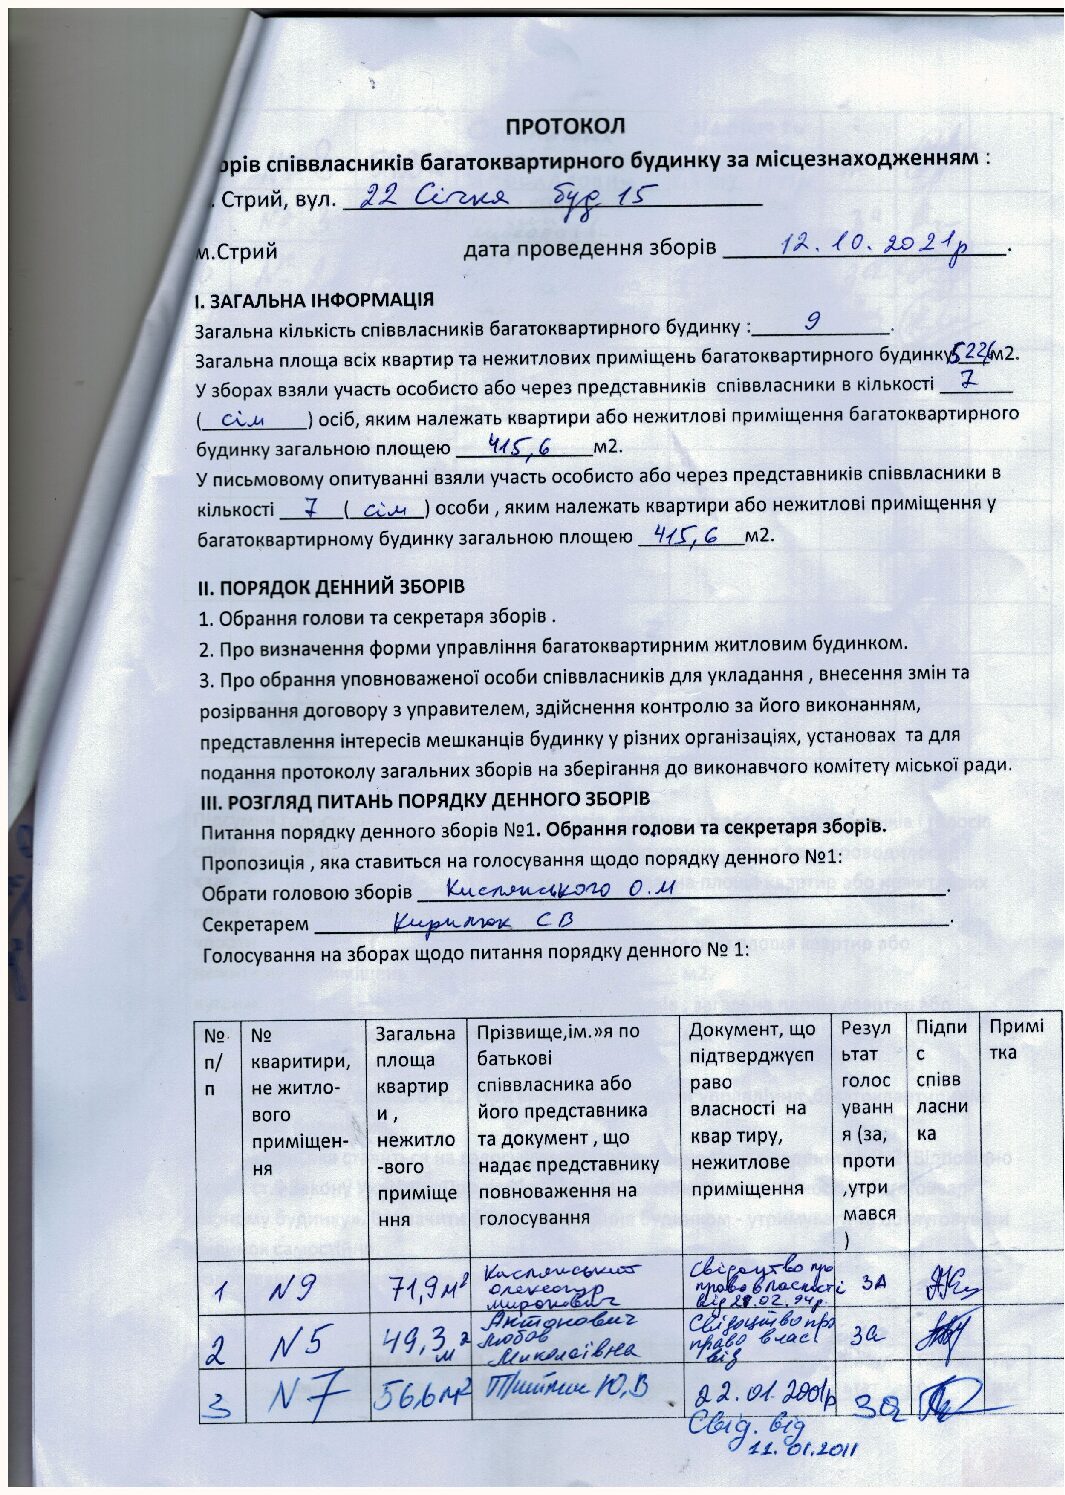 ПРОТОКОЛ
орів співвласників багатоквартирного будинку за місцезнаходженням :
. Стрий, вул. 22 Січня буд 15
м.Стрий дата проведення зборів 12.10.2021р.
І. ЗАГАЛЬНА ІНФОРМАЦІЯ
Загальна кількість співвласників багатоквартирного будинку : 9.
Загальна площа всіх квартир та нежитлових приміщень багатоквартирного будинку м2.
У зборах взяли участь особисто або через представників співвласники в кількості 7
( сім ) осіб, яким належать квартири або нежитлові приміщення багатоквартирного
будинку загальною площею 415,6 м2.
У письмовому опитуванні взяли участь особисто або через представників співвласники в
кількості 7 ( сім ) особи , яким належать квартири або нежитлові приміщення у
багатоквартирному будинку загальною площею 415,6 м2.
ІІ. ПОРЯДОК ДЕННИЙ ЗБОРІВ
1. Обрання голови та секретаря зборів .
2. Про визначення форми управління багатоквартирним житловим будинком.
3. Про обрання уповноваженої особи співвласників для укладання , внесення змін та
розірвання договору з управителем, здійснення контролю за його виконанням,
представлення інтересів мешканців будинку у різних організаціях, установах та для
подання протоколу загальних зборів на зберігання до виконавчого комітету міської ради.
ІІІ. РОЗГЛЯД ПИТАНЬ ПОРЯДКУ ДЕННОГО ЗБОРІВ
Питання порядку денного зборів №1. Обрання голови та секретаря зборів.
Пропозиція , яка ставиться на голосування щодо порядку денного №1:
Обрати головою зборів Кислянського О.М.
Секретарем Кирилюк С В.
Голосування на зборах щодо питання порядку денного № 1:
№
п/
п
№
кваритири,
не житло-
вого
приміщен-
ня
Загальна
площа
квартир
и ,
нежитло
-вого
приміще
ння
Прізвище,ім.»я по
батькові
співвласника або
його представника
та документ , що
надає представнику
повноваження на
голосування
Документ, що
підтверджуєп
раво
власності на
квар тиру,
нежитлове
приміщення
Резул
ьтат
голос
уванн
я (за,
проти
,утри
мався
)
Підпи
с
співв
ласни
ка
Примі
тка
1
N9
71,9м²
Кислянський
Олександр
Миронович
Свідоцтво про
право власності
від 28.02.94р.
ЗА
2
N5
49,3м²
Антонович
Любов
Миколаївна
Свідоцтво про
право влас
від
За
3
N7
56,6м²
Ю,В
22.01.2001р
Свід. від
11.01.2011
За